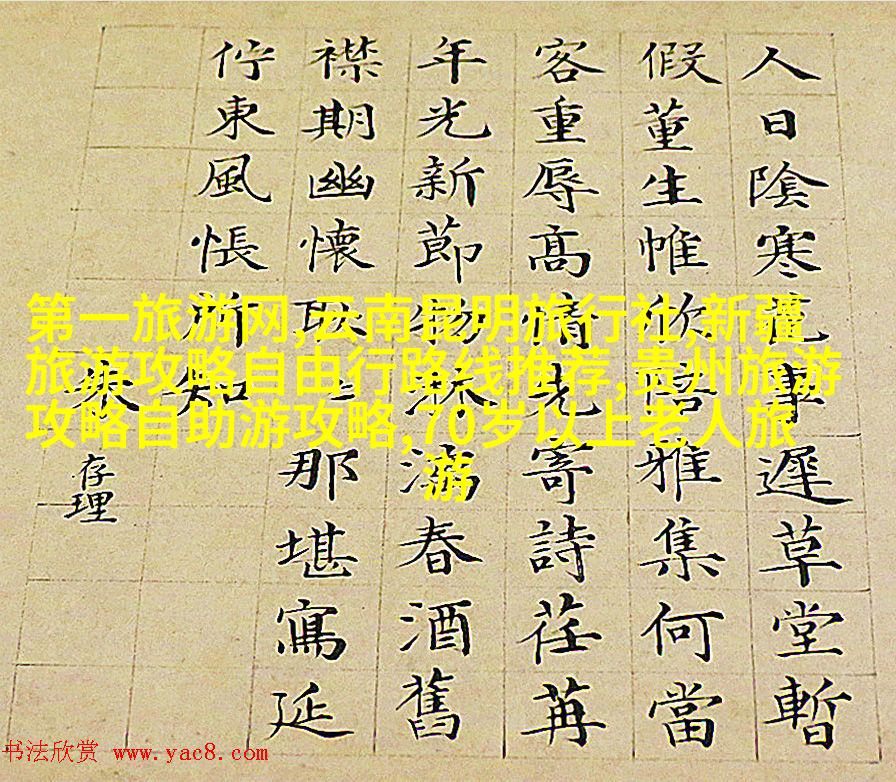 人日陰寒花事遲草堂暫
假董生帷欣陪雅集何當
客重辱高情先寄詩荏苒
年光新節物淋漓春酒舊
襟期幽懷耿〻那堪寫延
佇東風悵所知
朱存理
第一旅游网,云南昆明旅行社,新疆
旅游攻略自由行路线推荐,贵州旅游
攻略自助游攻略,70岁以上老人旅
游
书法欣赏 www.yac8.com